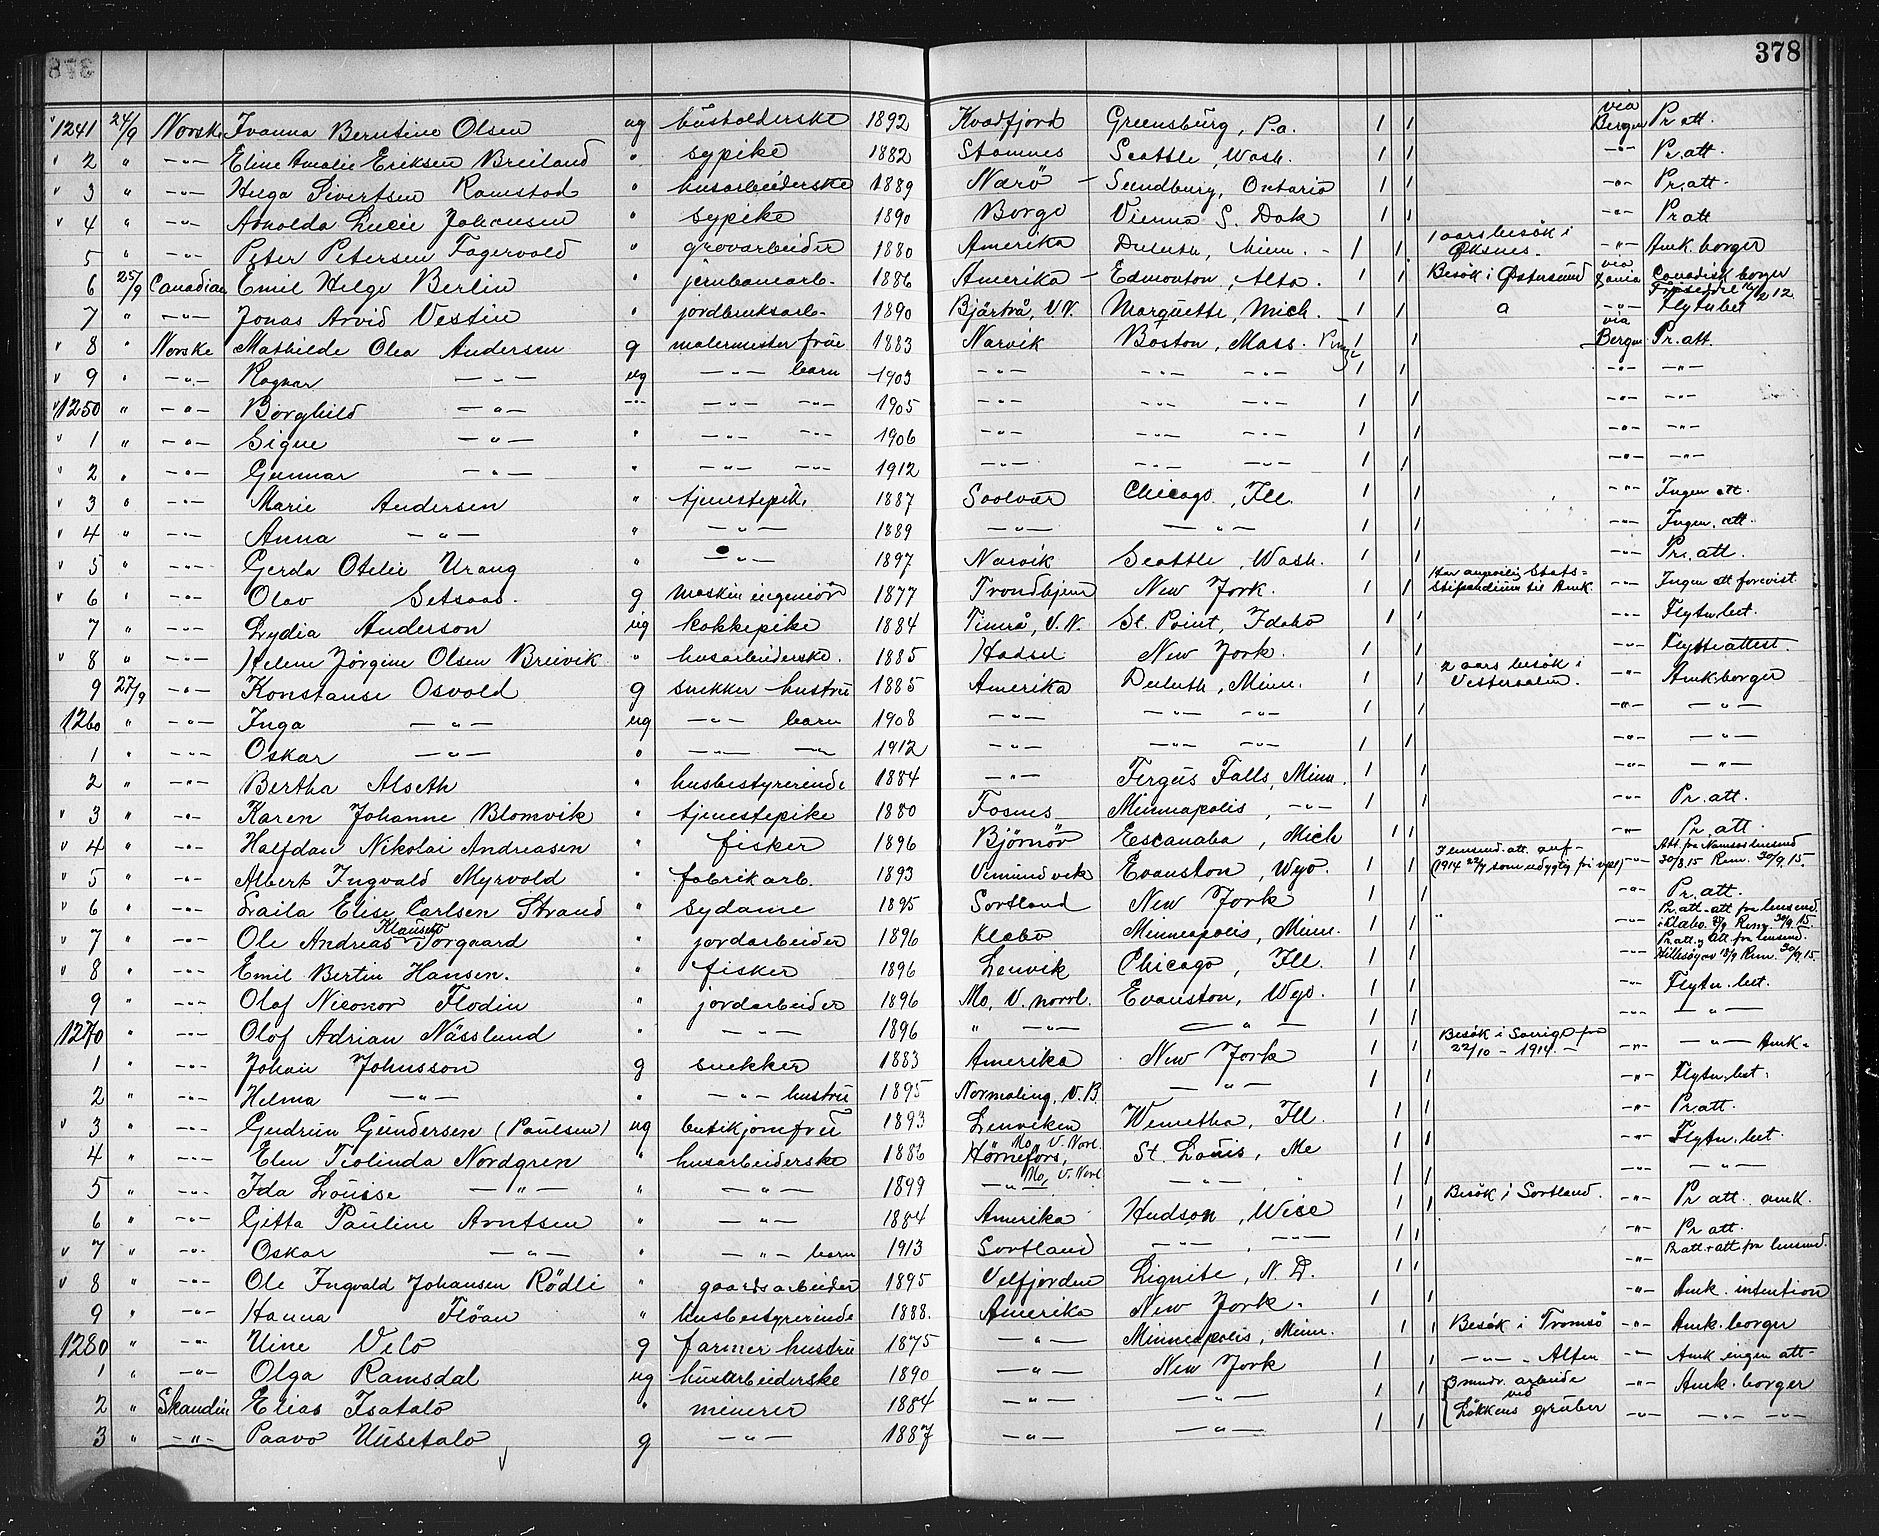 378
1241 24/9 Norske Ivanna Berntine Olsen ug husholderske 1892 Kvadfjord Greensburg, Pa. 1 1 via Bergen Pr. att.
2 " -"- Eline Amalie Eriksen Breiland " sypike 1882 Stamnes Seattle, Wash. 1 1 -"- Pr. att.
3 " -"- Helga Sivertsen Ramstad " husarbeiderske 1889 Nærö - Sundbury, Ontario 1 1 -"- Pr. att.
4 " -"- Arnolda Lucie Johansen " sypike 1890 Borge Vienna S. Dak 1 1 -"- Pr att
5 " -"- Peter Petersen Fagervold " grovarbeider 1880 Amerika Duluth, Minn. - 1 1 1 aars besök i Øksnes. -"- Amk. borger
6 25/9 Canadian Emil Helge Berlin " jernbanearb. 1886 Amerika - Edmonton, Alta. 1 1 Besök i Østersund via Canadisk borger
7 " -"- Jonas Arvid Vestin " jordbruksarb. 1890 Bjärtrå, V.N. Marquette, Mich. 1 1 a -"- Flytn.bet
8 " Norske Mathilde Olea Andersen g malermester frue 1883 Narvik Boston, Mass. 1 1 via Bergen Pr. att.
9 " -"- Ragnar -"- ug -"- barn 1903 -"- -"- -"- 1 1 -"- -"-
1250 " -"- Borghild -"- -"- -"- -"- 1905 -"- -"- -"- 1 1 -"- -"-
1 " -"- Signe -"- " -"- -"- 1906 -"- -"- -"- 1 1 -"- -"-
2 " -"- Gunnar -"- " -"- -"- 1912 -"- -"- -"- 1 1 -"- -"-
3 " -"- Marie Andersen " tjenestepik. 1887 Soolvær Chicago, Ill. 1 1 -"- Ingen att.
4 " -"- Anna -"- " -"- 1889 -"- -"- 1 1 -"- Ingen. att.
5 " -"- Gerda Otelie Urang " -"- 1897 Narvik Seattle, Wash. 1 1 -"- Pr. att.
6 " -"- Olav Setsaas. g maskin ingeniör 1877 Trondhjem New York. 1 1 Har Stats-stipendium til Amk. -"- Ingen att forevist.
7 " -"- Lydia Anderson ug kokkepike 1884 Timrå, V.N. St. Point, Idaho 1 1 -"- Flytn. bet.
8 " -"- Helene Jörgine Olsen Breivik " husarbeiderske. 1885 Hadsel New York. 1 1 -"- Flytteattest.
9 27/9 -"- Konstanse Osvold g snekker hustru 1885 Amerika Duluth, Minn. 1 1 2 aars besök i Vesteraalen. -"- Amk. borger
1260 " -"- Inga -"- ug -"- barn 1908 -"- -"- -"- 1 1 -"- -"-
1 " -"- Oskar -"- " -"- -"- 1912 -"- -"- -"- 1 1 -"- -"-
2 " -"- Bertha Alseth " husbestyrerinde 1884 -"- Fergus Falls, Minn. 1 1 -"- -"-
3 " -"- Karen Johanne Blomvik " tjenestepike 1880 Fosnes Minneapolis, -"- 1 1 -"- Pr. att.
4 " -"- Halfdan Nikolai Andreasen " fisker 1896 Björnör Escanaba, Mich 1 1 -"- Pr. att.
5 " -"- Albert Ingvald Myrvold " fabrikarb. 1893 Vemundvik Evanston, Wyo. 1 1 (1914 22/9 som udygtig -"- Att. fra Namsos lensmd 30/8.15 Rem. 30/9.15.
6 " -"- Laila Elise Carlsen Strand " sydame 1895 Sortland New York 1 1 -"- Pr. att.
7 " -"- Ole Andreas Klausen Torgaard " jordarbeider 1896 Klæbo Minneapolis, Minn. 1 1 -"- Pr. att - att fra lensmd. i Klæbo. Rem. 30/9.15.
8 " -"- Emil Bertin Hansen. " fisker 1896 Lenvik Chicago, Ill. 1 1 -"- Pr. att. og Att. fra lensmd. Hillesöy av 18/9 Rem. 30/9.15.
9 " -"- Olof Niconor Flodin " jordarbeider 1896 Mo, V. norrl. Evanston, Wyo. 1 1 -"- Flytn. bet.
1270 " -"- Olof Adrian Nässlund " -"- 1896 " -"- -"- 1 1 -"- -"-
1 " -"- Johan Johnsson g snekker 1883 Amerika New York 1 1 Besök i Sverige fra 22/10 - 1914 - -"- -"- Amk.
2 " -"- Helma -"- " -"- hustru 1895 Normaling, V.B. -"- 1 1 -"- Flytn. bet.
3 " -"- Gudrun Gundersen (Paulsen) ug butikjomfru 1893 Lenviken Wenetha, Ill. 1 1 -"- Pr. att.
4 " -"- Elen Teolinda Nordgren " husarbeiderske 1886 Hörnefors, Mo, V. Norl. St. Louis, Me 1 1 -"- Flytn. bet.
5 " -"- Ida Louise -"- " -"- 1899 -"- Mo, V. Norl -"- " 1 1 -"- -"-
6 " -"- Gitta Pauline Arntsen " -"- 1884 Amerika Hudson, Wisc 1 1 Besök i Sortland. -"- Pr att. amk.
7 " -"- Oskar -"- " -"- barn 1913 Sortland -"- -"- 1 1 -"- Pr att.
8 " -"- Ole Ingvald Johansen Rödli " gaardsarbeider 1895 Velfjorden Lignite, N. D. 1 1 -"- Pr. att + att fra lensmd.
9 " -"- Hanna Flöan " husbestyrerinde 1888. Amerika New York. 1 1 -"- Amk. intention
1280 " -"- Uine Velo g farmer hustru 1875 -"- Minneapolis, Minn. 1 1 Besök i Tromsö -"- Amk. borger
1 " -"- Olga Ramsdal ug husarbeiderske 1890 -"- New York 1 1 -"- - Alten -"- Amk ingen att-
2 " Skandin Elias Isatalo " minerer 1884 -"- -"- 1 1 3 mndr. arbeide ved -"- Amk. borger
3 " -"- Paavo Uusetalo g -"- 1887 -"- -"- 1 1 Lökkens gruber -"- -"- -"-